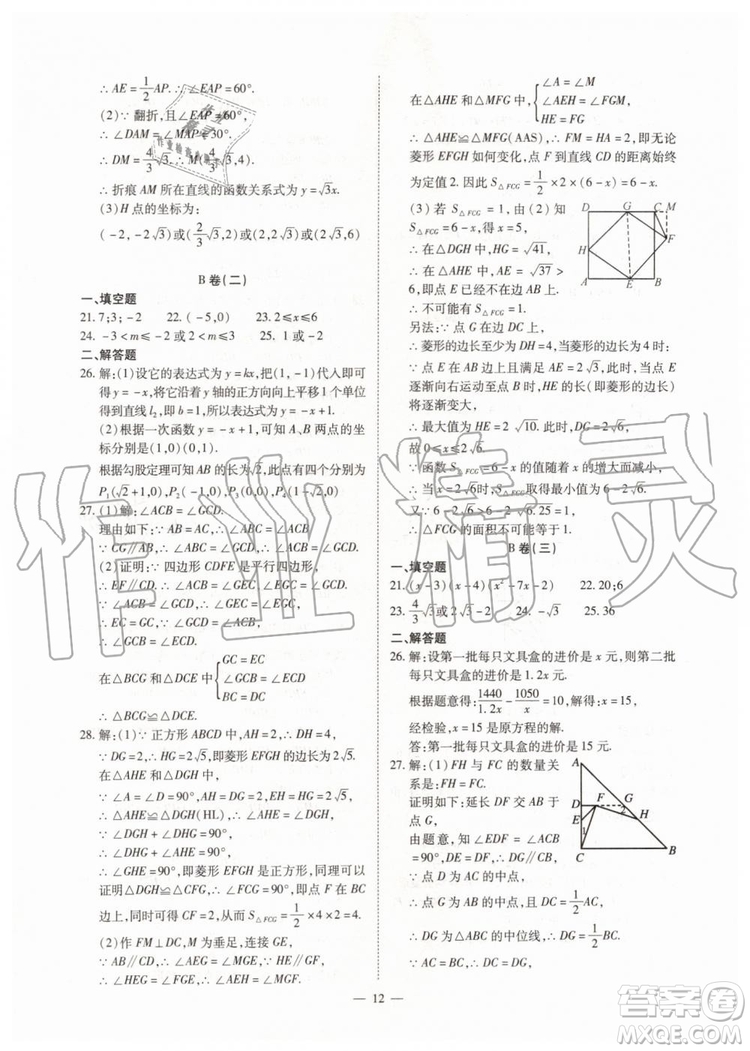 ∴ AE = 1/2 AP. ∴ ∠EAP = 60°.
(2)∵ 翻折, 且∠EAP = 60°,
∴ ∠DAM = ∠MAP = 30°.
∴ DM = 4/3 √3. ∴ M(4/3 √3, 4),
∴ 折痕 AM 所在直线的函数关系式为 y = √3x.
(3)H 点的坐标为:
(-2, -2√3)或(2/3 √3, 2)或(2√3, 6)
B 卷(二)
一、填空题
21. 7;3; -2 22. (-5,0) 23. 2≤x≤6
24. -3 < m ≤ -2 25. 1 或 -2
二、解答题
26. 解:(1)设它的表达式为 y = kx, 把(1, -1)代入即可
得到 y = -x, 将它沿着 y 轴的正方向向上平移1个单位
得到直线 l₂, 即 b = 1, 所以表达式为 y = -x + 1.
(2)根据一次函数 y = -x + 1, 可知 A、B 两点的坐
标分别是(1,0)(0,1).
根据勾股定理可知 AB 的长为√2, 此点的坐标分别为
P₁(√2 + 1,0), P₂(-1,0), P₃(1 - √2,0), P₄(0,0)
27. (1)解: ∠ACB = ∠GCD.
理由如下: ∵ AB = AC, ∴ ∠ABC = ∠ACB
∵ CG∥AB, ∴ ∠ABC = ∠GCD, ∴ ∠ACB = ∠GCD
(2)证明: ∵ 四边形 CDFE 是平行四边形,
∴ EF∥CD. ∴ ∠ACB = ∠GEC, ∠EGC = ∠GCD.
∵ ∠ACB = ∠GCD, ∴ ∠GEC = ∠EGC,
∴ EC = GC, ∵ ∠GCD = ∠ACB,
∴ ∠GCB = ∠ECD.
在△BCG 和△DCE 中 { GC = EC
∠GCB = ∠ECD
BC = DC
∴ △BCG≌△DCE.
28. 解:(1)∵ 正方形 ABCD 中, ∴ DH = 4,
∵ DG = 2, ∴ HG = 2√5, 即菱形 EFGH 的边长为2√5.
在△AHE 和△DGH 中,
∵ ∠A = ∠D = 90°, AH = DG = 2, EH = HG = 2√5,
∴ △AHE≌△DGH(HL), ∴ ∠AHE = ∠DGH,
∵ ∠DGH + ∠DHG = 90°,
∴ ∠DHG + ∠AHE = 90°,
∴ ∠GHE = 90°, 即菱形 EFGH 是正方形, 同理可以
证明△DGH≌△CFG, ∴ ∠FCG = 90°, 即点 F 在 BC
边上, 同时可得 CF = 2, 从而 S△FCG = 1/2 × 4 × 2 = 4.
(2)作 FM⊥DC, M 为垂足, 连接 GE,
∵ AB∥CD, ∴ ∠AEG = ∠MGE
∵ HE∥GF, ∴ ∠HEG = ∠FGE, ∴ ∠AEH = ∠MGF.
在△AHE 和△MFG 中, { ∠A = ∠M
∠AEH = ∠FGM,
HE = FG
∴ △AHE≌△MFG(AAS), ∴ FM = HA = 2, 即无论
菱形 EFGH 如何变化, 点 F 到直线 CD 的距离始终
为定值2. 因此 S△FCG = 1/2 × 2 × (6 - x) = 6 - x.
(3) 若 S△FCG = 1, 由(2)知
S△FCG = 6 - x, 得 x = 5,
∴ 在△DGH 中, HG = √41,
∴ 在△AHE 中, AE = √37 >
6, 即点 E 已经不在边 AB 上.
∴ 不可能有 S△FCG = 1.
另法: ∵ 点 G 在边 DC 上,
∴ 菱形的边长至少为 DH = 4, 当菱形的边长为4时:
∵ 点 E 在 AB 边上且满足 AE = 2√3, 此时, 当点 E
逐渐向右运动至点 B 时, HE 的长(即菱形的边长)
将逐渐变大,
∴ 最大值为 HE = 2√10. 此时, DG = 2√6,
故 0≤x≤2√6.
∵ 函数 S△FCG = 6 - x 的值随着 x 的增大而减小,
∴ 当 x = 2√6时, S△FCG取得最小值为 6 - 2√6.
又∵ 6 - 2√6 > 6 - 2√6.25 = 1,
∴ △FCG 的面积不可能等于1.
B 卷(三)
一、填空题
21. (x - 3)(x - 4)(x² - 7x - 2) 22. 20;6
23. 4/3 √3或2√3 24. -√3 25. 36
二、解答题
26. 解: 设第一批每只文具盒的进价是 x 元, 则第二批
每只文具盒的进价是1.2x 元.
根据题意得: 1440/1.2x - 1050/x = 10, 解得: x = 15,
经检验, x = 15 是原方程的解.
答: 第一批每只文具盒的进价是15元.
27. 解:(1)FH 与 FC 的数量关
系是: FH = FC.
证明如下: 延长 DF 交 AB 于
点 G,
由题意, 知∠EDF = ∠ACB
= 90°, ∴ DG∥CB.
∵ 点 D 为 AC 的中点,
∴ 点 G 为 AB 的中点, 且 DC = 1/2 AC.
∴ DG 为△ABC 的中位线, ∴ DG = 1/2 BC.
∵ AC = BC, ∴ DC = DG.
— 12 —
D G C M
H F
A E B
A
D F G
E 2 H
1
C B
作业精灵
答案圈
MXQE.COM